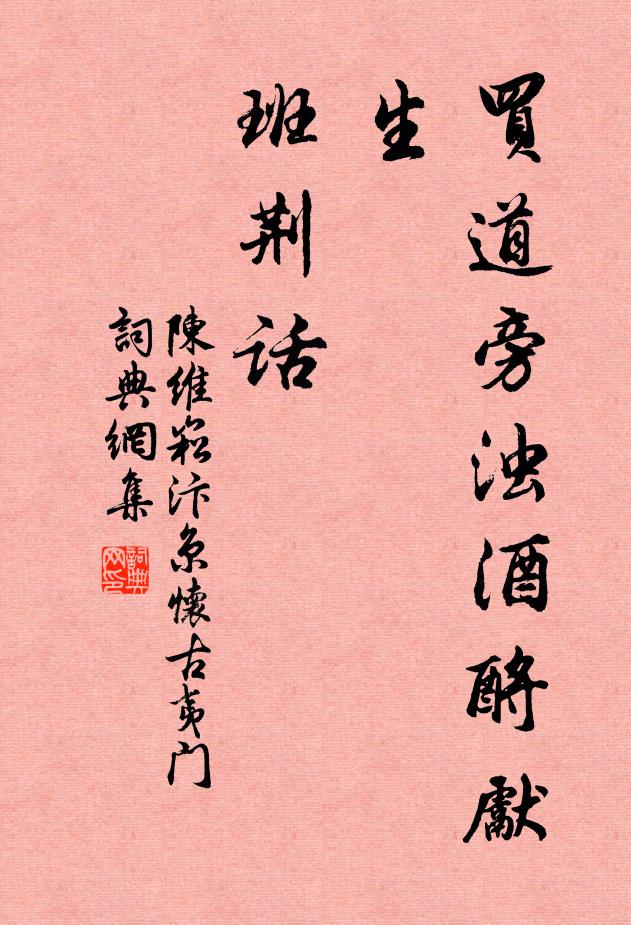 買道旁浊酒酹獻
生
班荆話
陳維崧汴京懷古夷門
詞典網集
詞典
网印